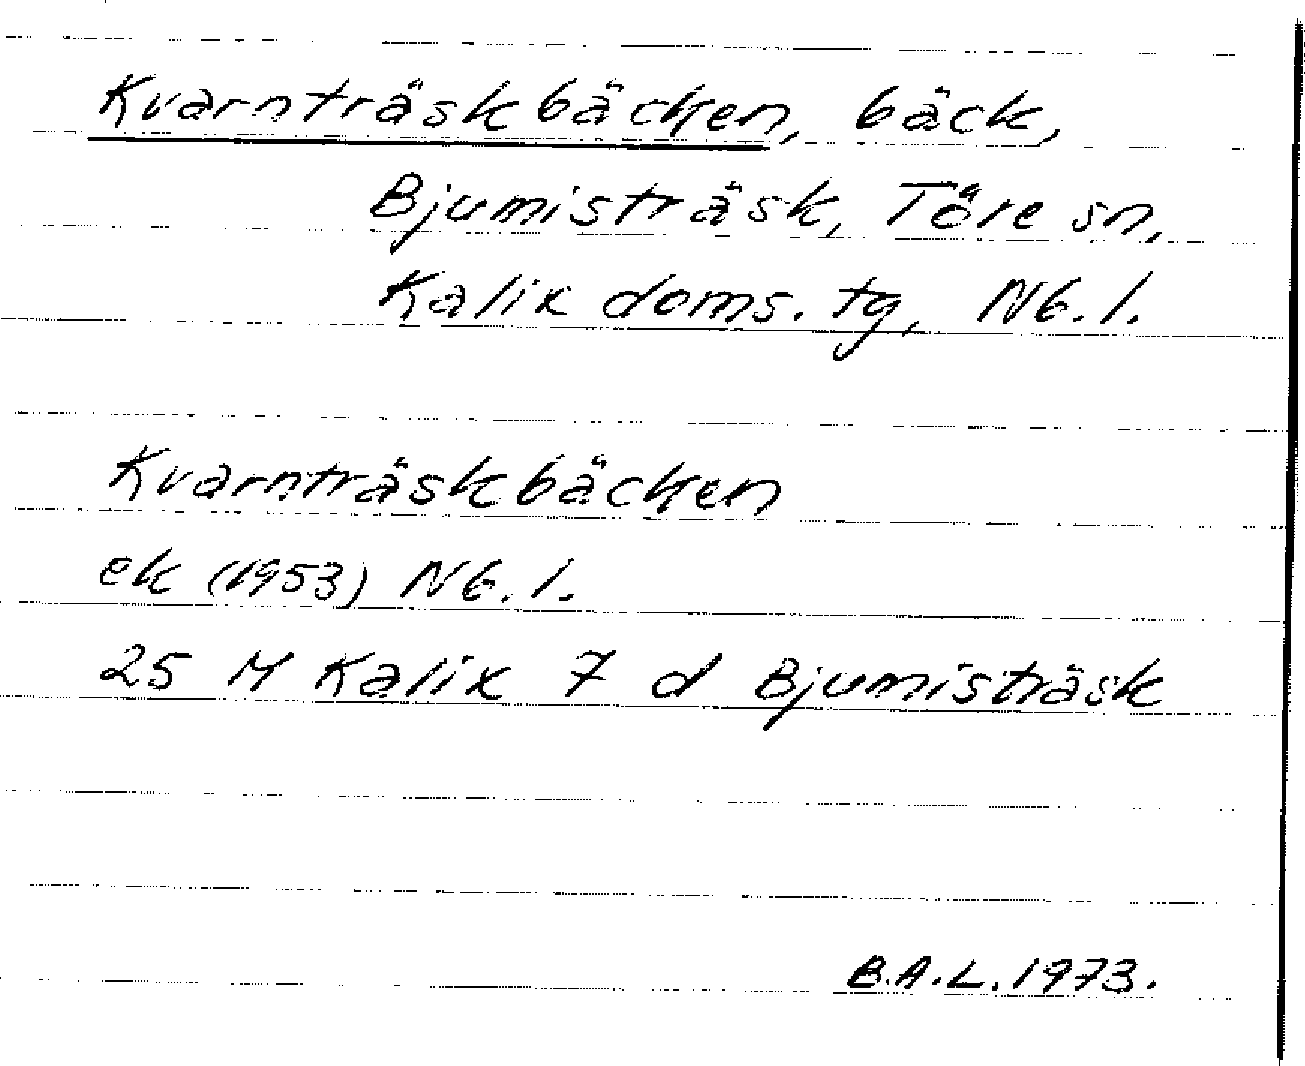 Kvarnträskbäcken, bäck,
Bjumisträsk, Töre sn,
Kalix doms. tg, Nb. l.
Kvarnträskbäcken
ek (1953) Nb. l.
25 M Kalix 7 d Bjumisträsk
B.A.L. 1973.